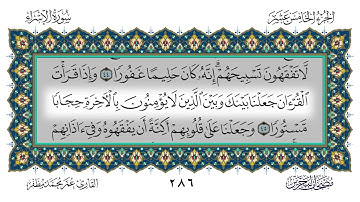 الجزء الخامس عشر
سورة الإسراء
لَّا تَفْقَهُونَ تَسْبِيحَهُمْ ۗ إِنَّهُ كَانَ حَلِيمًا غَفُورًا ٤٤ وَإِذَا قَرَأْتَ
الْقُرْءَانَ جَعَلْنَا بَيْنَكَ وَبَيْنَ الَّذِينَ لَا يُؤْمِنُونَ بِالْآخِرَةِ حِجَابًا
مَّسْتُورًا ٤٥ وَجَعَلْنَا عَلَىٰ قُلُوبِهِمْ أَكِنَّةً أَن يَفْقَهُوهُ وَفِي ءَاذَانِهِمْ
٢٨٦
القارئ عمر محمد مظفر